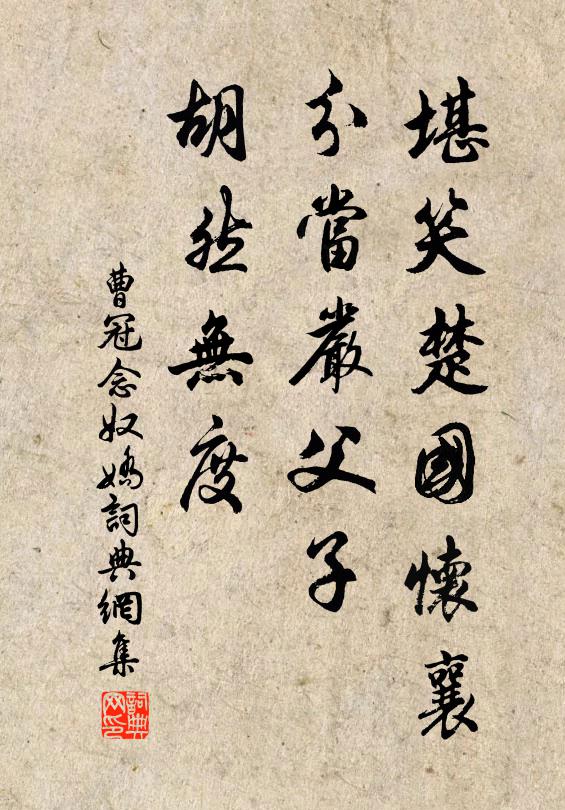 堪笑楚國懷襄
分當嚴父子
胡然無度
曹冠念奴嬌詞典網集
詞典
网印